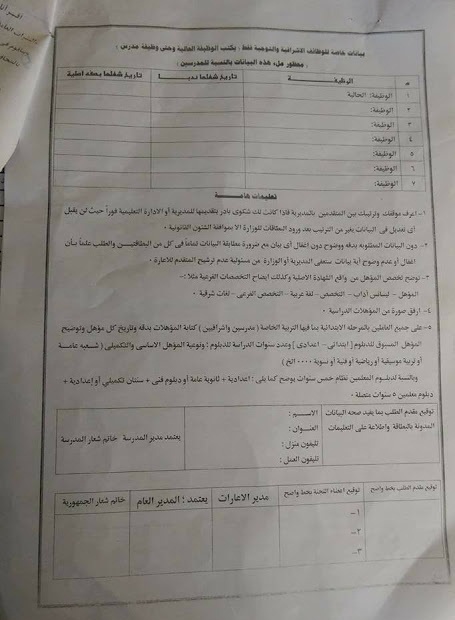 بيانات خاصة للوظائف الاشرافية والتوجية فقط : يكتب الوظيفة الحالية وحتى وظيفة مدرس :
محظور ملء هذه البيانات بالنسبة للمدرسين :
م الوظيفــة تاريخ شغلها ندبـا تاريخ شغلها بصفه اصلية
١ الوظيفة: الحالية
٢ الوظيفة:
٣ الوظيفة:
٤ الوظيفة:
٥ الوظيفة:
٦ الوظيفة:
٧ الوظيفة:
تعليمات هامـة
١- اعرف موقفك وترتيبك بين المتقدمين بالمديرية فاذا كانت لك شكوى بادر بتقديمها للمديرية أو الادارة التعليمية فوراً حيث لن يقبل
أى تعديل فى البيانات يغير من الترتيب بعد ورود البطاقات للوزارة الا بموافقة الشئون القانونية ٠
٢- دون البيانات المطلوبه بدقه ووضوح دون إغفال أى بيان مع ضرورة مطابقة البيانات تماما فى كل من البطاقتيـن والطلب علماً بـأن
اغفال أو عدم وضوح أية بيانات ستعفى المديرية أو الوزارة من مسئولية عدم ترشيح المتقدم للاعارة ٠
٣- توضح تخصص المؤهل من واقع الشهادة الاصلية وكذلك ايضاح التخصصات الفرعية مثلا :-
المؤهل - ليسانس آداب - التخصص - لغة عربية - التخصص الفرعى - لغات شرقية ٠
٤- ارفق صورة من المؤهلات الدراسية ٠
٥- على جميع العاملين بالمرحلة الابتدائية بما فيها التربية الخاصة ( مدرسين واشرافيين ) كتابة المؤهلات بدقه وتاريخ كل مؤهل وتوضيح
المؤهل المسبوق للدبلوم [ ابتدائى - اعدادى ] وعدد سنوات الدراسة للدبلوم ؛ ونوعية المؤهل الاساسى والتكميلى ( شـعبه عامـة
أو تربية موسيقية أو رياضية أو فنية أو نسوية ٠٠٠٠ الخ )
وبالنسبة لدبلـوم المعلمين نظام خمس سنوات يوضح كما يلى : اعدادية + ثانوية عامة أو دبلوم فنى + سنتان تكميلي أو إعدادية +
دبلوم معلمين ٥ سنوات متصلة ٠
توقيع مقدم الطلب بما يفيد صحه البيانات
المدونة بالبطاقة واطلاعة على التعليمات
الاسـم :
العنـوان :
تليفون منزل :
تليفون العمل :
يعتمد مدير المدرسة خاتم شعار المدرسة
توقيع مقدم الطلب بخط واضح توقيع اعضاء اللجنة بخط واضح مدير الاعارات يعتمد ؛ المدير العام خاتم شعار الجمهورية
١-
٢-
٣-